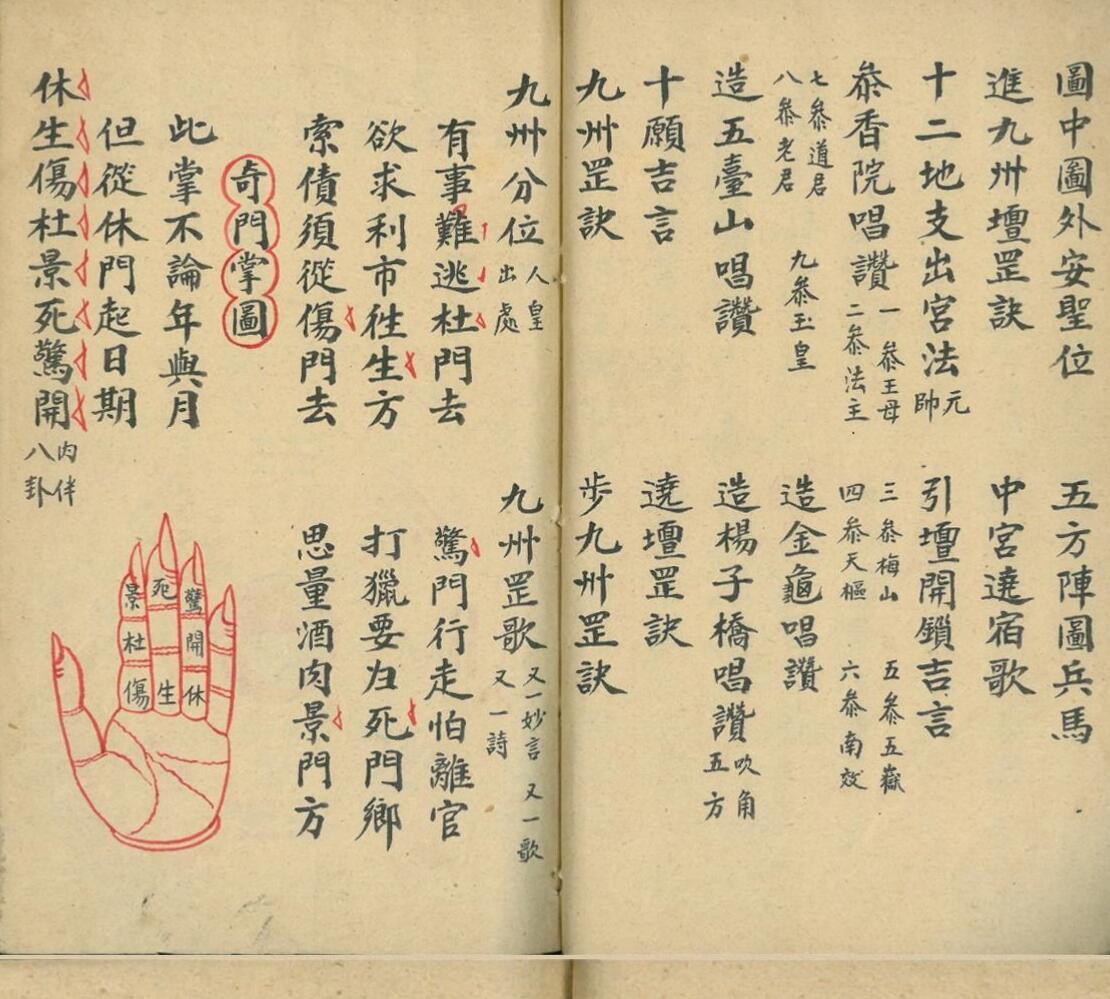 圖中圖外安聖位　五方陣圖兵馬
進九州壇罡訣　中宮遶宿歌
十二地支出宮法　元帥　引壇開鎖吉言
叅香院唱讚　一叅王母　二叅法主　三叅梅山　四叅天樞　五叅五嶽　六叅南效
七叅道君　八叅老君　九叅玉皇　造金龜唱讚
造五臺山唱讚　造楊子橋唱讚　吹角五方
十願吉言　遶壇罡訣
九州罡訣　步九州罡訣
九州分位　人皇出處　九州罡歌　又一妙言　又一歌　又一詩
有事難逃杜門去　驚門行走怕離官
欲求利市徃生方　打獵要归死門鄉
索債須從傷門去　思量酒肉景門方
奇門掌圖
此掌不論年與月
但從休門起日期
休生傷杜景死驚開　內伴八卦
景　死　驚
杜　開
傷　生　休